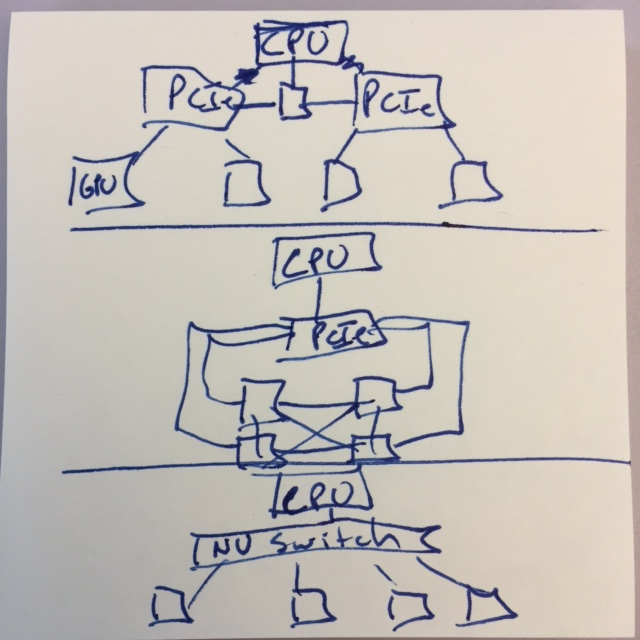 CPU
PCIe PCIe
GPU
CPU
PCIe
CPU
NV Switch